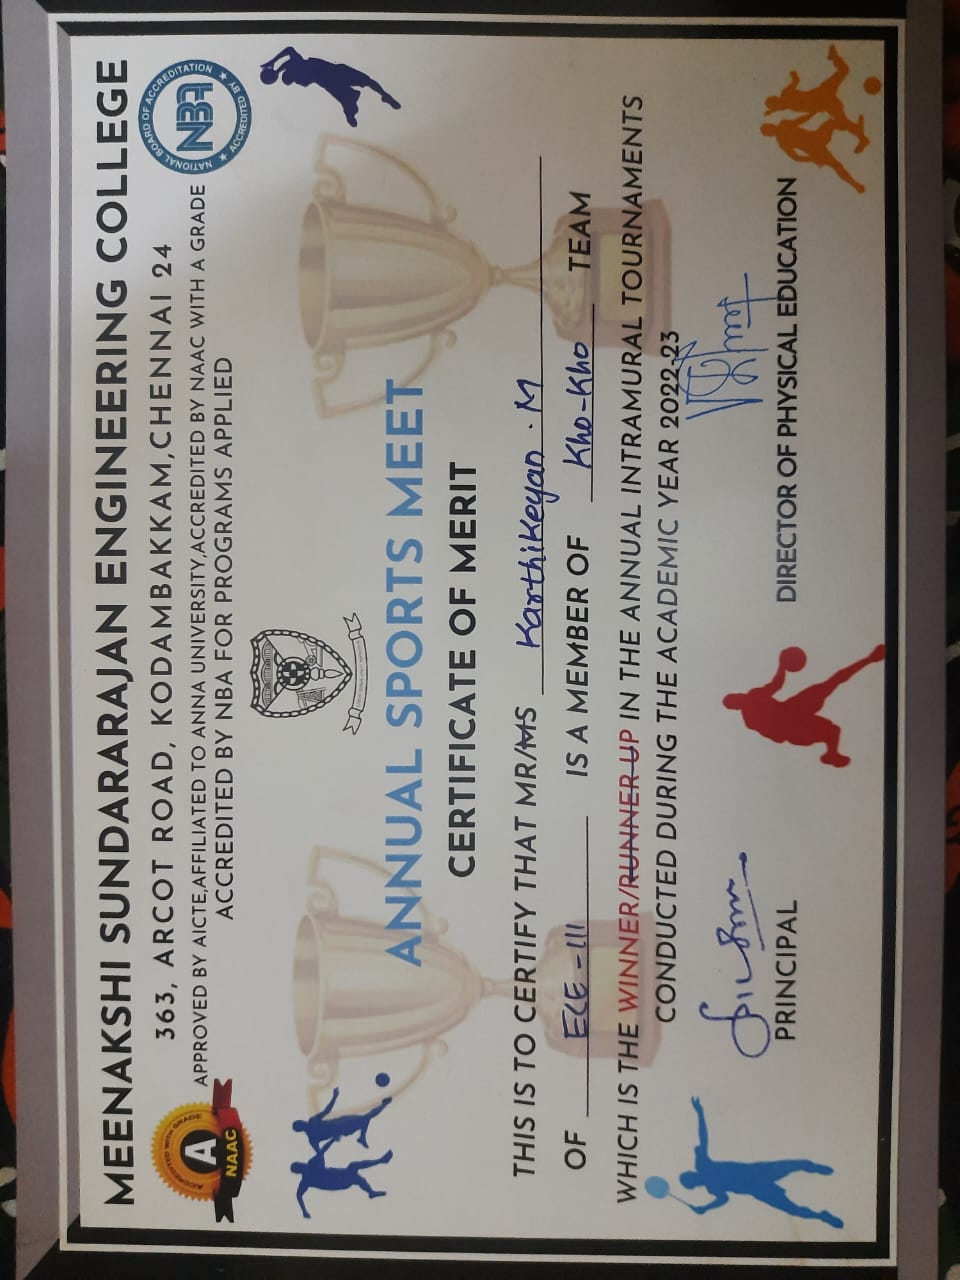 MEENAKSHI SUNDARARAJAN ENGINEERING COLLEGE
363, ARCOT ROAD, KODAMBAKKAM,CHENNAI 24
APPROVED BY AICTE,AFFILIATED TO ANNA UNIVERSITY,ACCREDITED BY NAAC WITH A GRADE
ACCREDITED BY NBA FOR PROGRAMS APPLIED
ACCREDITED WITH GRADE
A
NAAC
NATIONAL BOARD OF ACCREDITATION
NBA
ACCREDITED BY
ANNUAL SPORTS MEET
CERTIFICATE OF MERIT
THIS IS TO CERTIFY THAT MR/MS Karthikeyan . M
OF ECE - III IS A MEMBER OF Kho-Kho TEAM
WHICH IS THE WINNER/RUNNER UP IN THE ANNUAL INTRAMURAL TOURNAMENTS
CONDUCTED DURING THE ACADEMIC YEAR 2022-23
PRINCIPAL
DIRECTOR OF PHYSICAL EDUCATION